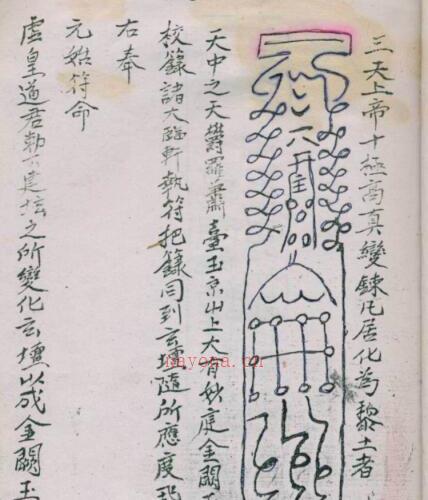 三天上帝十極高真變鍊凡居化為黎土者
天中之天欝羅蕭臺玉京山上大有妙庭金闕玉
校籙諸大臨軒執符把籙同到玄壇隨所應度
右奉
元始符命
虛皇道君勅下建坛之所變化玄壇以成金闕玉